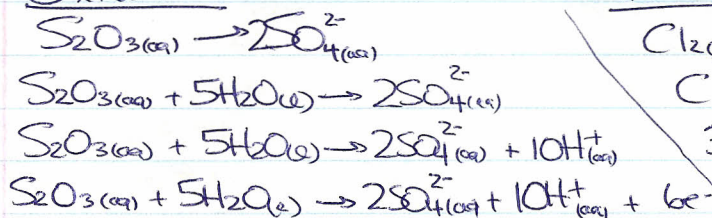 S2O3(aq) → 2SO4^2-(aq)
Cl2(
S2O3(aq) + 5H2O(l) → 2SO4^2-(aq)
C
S2O3(aq) + 5H2O(l) → 2SO4^2-(aq) + 10H+(aq)
S2O3(aq) + 5H2O(l) → 2SO4^2-(aq) + 10H+(aq) + 6e-